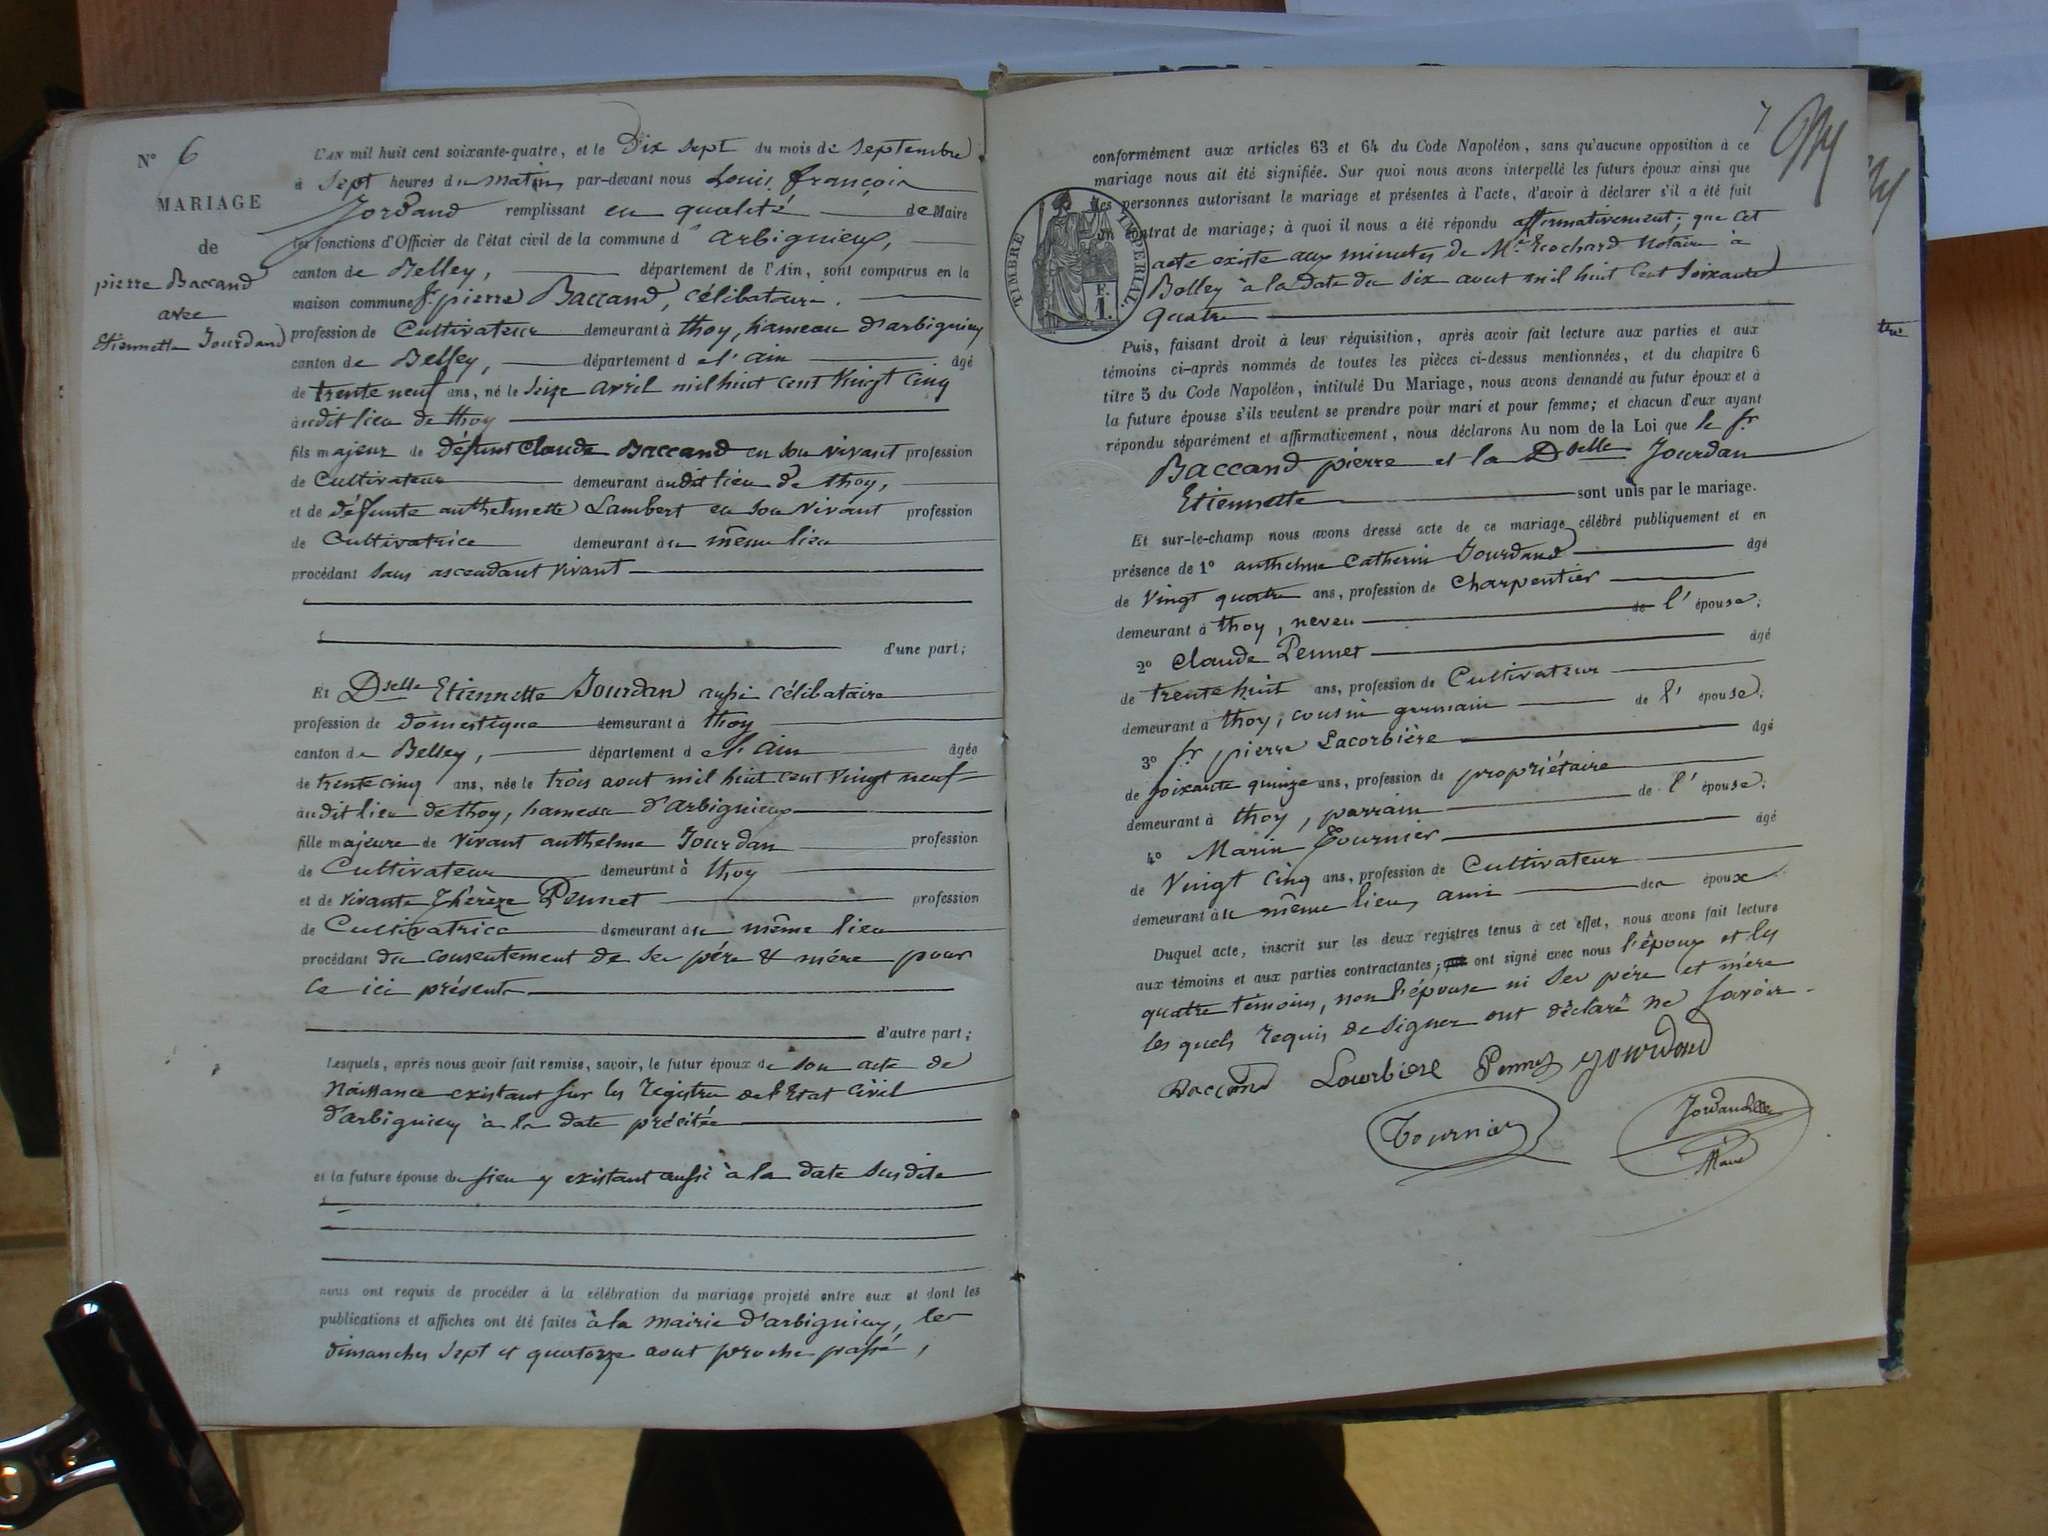 N° 6
MARIAGE
de
pierre Baccand
avec
Etiennette Jourdand
L'AN mil huit cent soixante-quatre, et le Dix sept du mois de Septembre
à Sept heures du matin, par-devant nous Louis, françois
Jordand remplissant en qualité de Maire
les fonctions d'Officier de l'état civil de la commune d'arbignieu,
canton de Belley, département de l'Ain, sont comparus en la
maison commune Sr. pierre Baccand, célibataire.
profession de Cultivateur demeurant à thoy, hameau d'arbignieu
canton de Belley, département de l'ain âgé
de trente neuf ans, né le Seize avril mil huit cent vingt cinq
audit lieu de thoy
fils majeur de défunt Claude Baccand en son vivant profession
de Cultivateur demeurant audit lieu de thoy,
et de défunte anthelmette Lambert en son vivant profession
de Cultivatrice demeurant au même lieu
procédant sans ascendant vivant
d'une part;
Et Dselle Etiennette Jourdan aussi célibataire
profession de domestique demeurant à thoy
canton de Belley, département de l'ain âgée
de trente cinq ans, née le trois aout mil huit cent vingt neuf
audit lieu de thoy, hameau d'arbignieu
fille majeure de vivant anthelme Jourdan profession
de Cultivateur demeurant à thoy
et de vivante Thérèze Pennet profession
de Cultivatrice demeurant au même lieu
procédant du consentement de ses père & mère pour
ce ici présents
d'autre part;
Lesquels, après nous avoir fait remise, savoir, le futur époux de son acte de
Naissance existant sur les registres de l'Etat Civil
d'arbignieu à la date précitée
et la future épouse du sien y existant aussi à la date susdite
nous ont requis de procéder à la célébration du mariage projeté entre eux et dont les
publications et affiches ont été faites à la mairie d'arbignieu, les
dimanches sept et quatorze aout proche passé,
7
conformément aux articles 63 et 64 du Code Napoléon, sans qu'aucune opposition à ce
mariage nous ait été signifiée. Sur quoi nous avons interpellé les futurs époux ainsi que
les personnes autorisant le mariage et présentes à l'acte, d'avoir à déclarer s'il a été fait
un contrat de mariage; à quoi il nous a été répondu affirmativement; que cet
acte existe aux minutes de Me. Trochard Notaire à
Belley à la date du six aout mil huit cent soixante
quatre
TIMBRE IMPERIAL
F. 1.
Puis, faisant droit à leur réquisition, après avoir fait lecture aux parties et aux
témoins ci-après nommés de toutes les pièces ci-dessus mentionnées, et du chapitre 6
titre 5 du Code Napoléon, intitulé Du Mariage, nous avons demandé au futur époux et à
la future épouse s'ils veulent se prendre pour mari et pour femme; et chacun d'eux ayant
répondu séparément et affirmativement, nous déclarons Au nom de la Loi que le Sr
Baccand pierre et la Dselle Jourdan
Etiennette sont unis par le mariage.
Et sur-le-champ nous avons dressé acte de ce mariage célébré publiquement et en
présence de 1° anthelme Catherin Jourdand âgé
de vingt quatre ans, profession de Charpentier
demeurant à thoy, neveu de l'épouse;
2° Claude Pennet âgé
de trente huit ans, profession de Cultivateur
demeurant à thoy, cousin germain de l'épouse;
3° Sr pierre Lacorbière âgé
de soixante quinze ans, profession de propriétaire
demeurant à thoy, parrain de l'épouse;
4° Marin Tournier âgé
de Vingt cinq ans, profession de Cultivateur
demeurant au même lieu, ami des époux
Duquel acte, inscrit sur les deux registres tenus à cet effet, nous avons fait lecture
aux témoins et aux parties contractantes; ont signé avec nous l'époux et les
quatre témoins, non l'épouse ni ses père et mère
les quels requis de signer ont déclaré ne savoir.
Baccand Lacorbiere Pennet Jourdand
Tournier Jordand
Maire